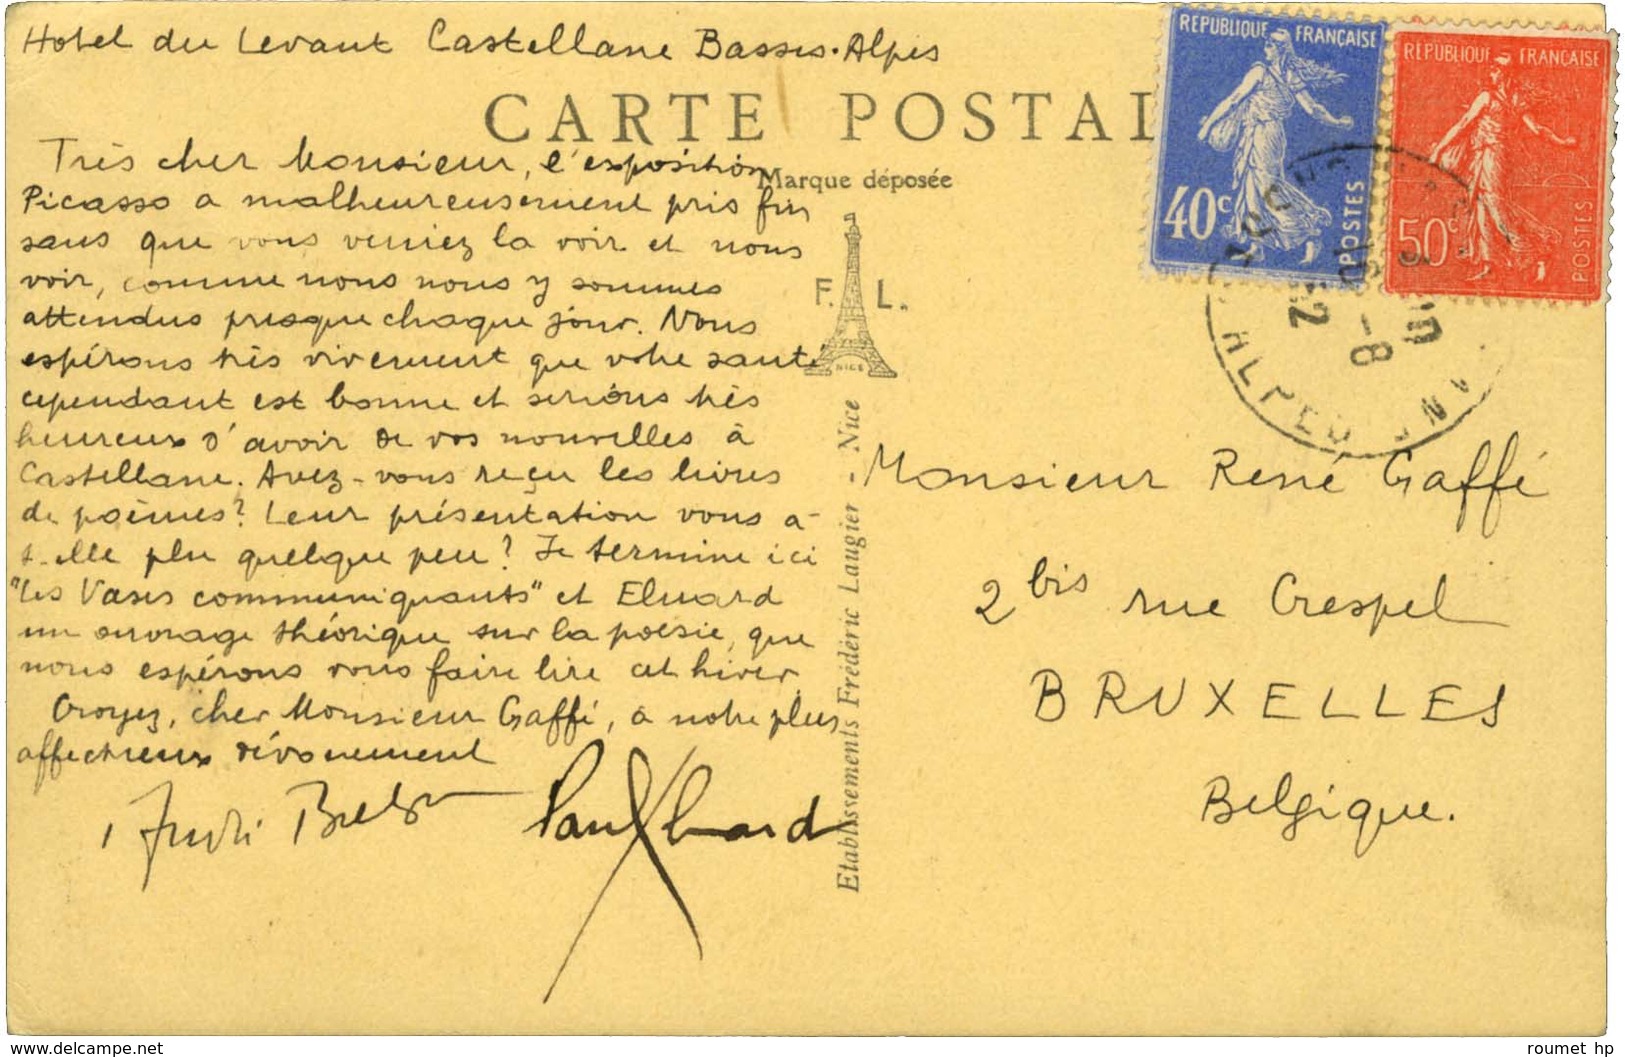 Hotel du Levant Castellane Basses-Alpes
CARTE POSTAL
Marque déposée
Très cher Monsieur, l'exposition
Picasso a malheureusement pris fin
sans que vous veniez la voir et nous
voir, comme nous nous y sommes
attendus presque chaque jour. Nous
espérons très vivement que votre santé
cependant est bonne et serions très
heureux d'avoir de vos nouvelles à
Castellane. Avez-vous reçu les livres
de poèmes? Leur présentation vous a-
t-elle plu quelque peu? Je termine ici
"Les Vases communiquants" et Eluard
un ouvrage théorique sur la poésie, que
nous espérons vous faire lire cet hiver
Croyez, cher Monsieur Gaffé, à notre plus
affectueux dévouement
André Breton Paul Eluard
F. L.
NICE
Etablissements Frédéric Laugier - Nice
REPUBLIQUE FRANÇAISE
40c
POSTES
REPUBLIQUE FRANÇAISE
50c
POSTES
Monsieur René Gaffé
2 bis rue Crespel
BRUXELLES
Belgique.
www.delcampe.net
roumet hp